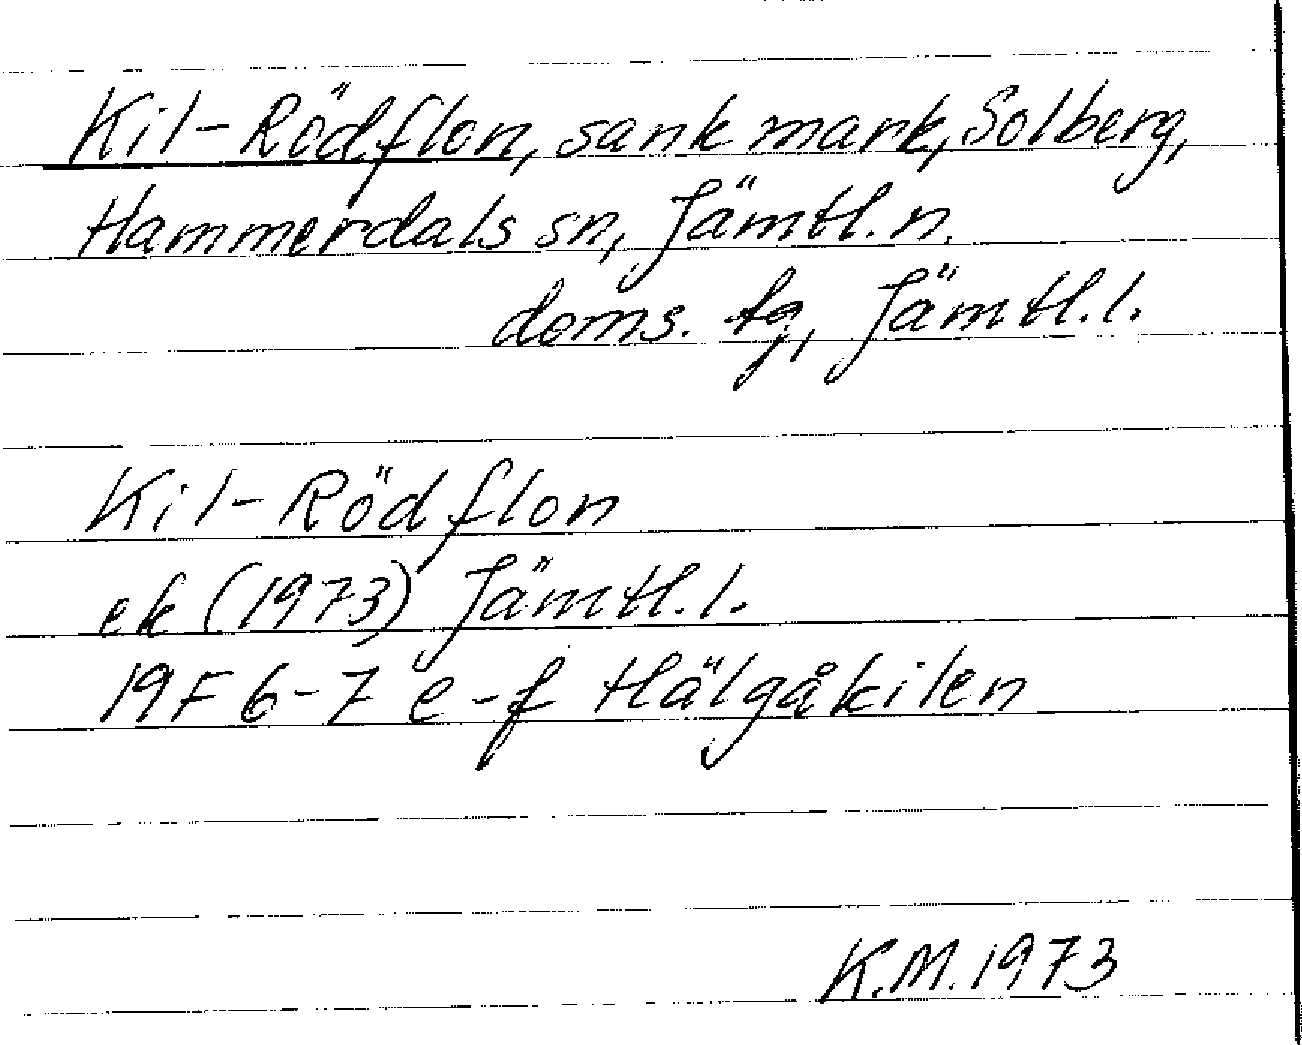 Kil-Rödflon, sank mark, Solberg,
Hammerdals sn, Jämtl. n.
doms. tg, Jämtl. l.
Kil-Rödflon
ek (1973) Jämtl. l.
19F 6-7 e-f Hälgåkilen
K.M. 1973